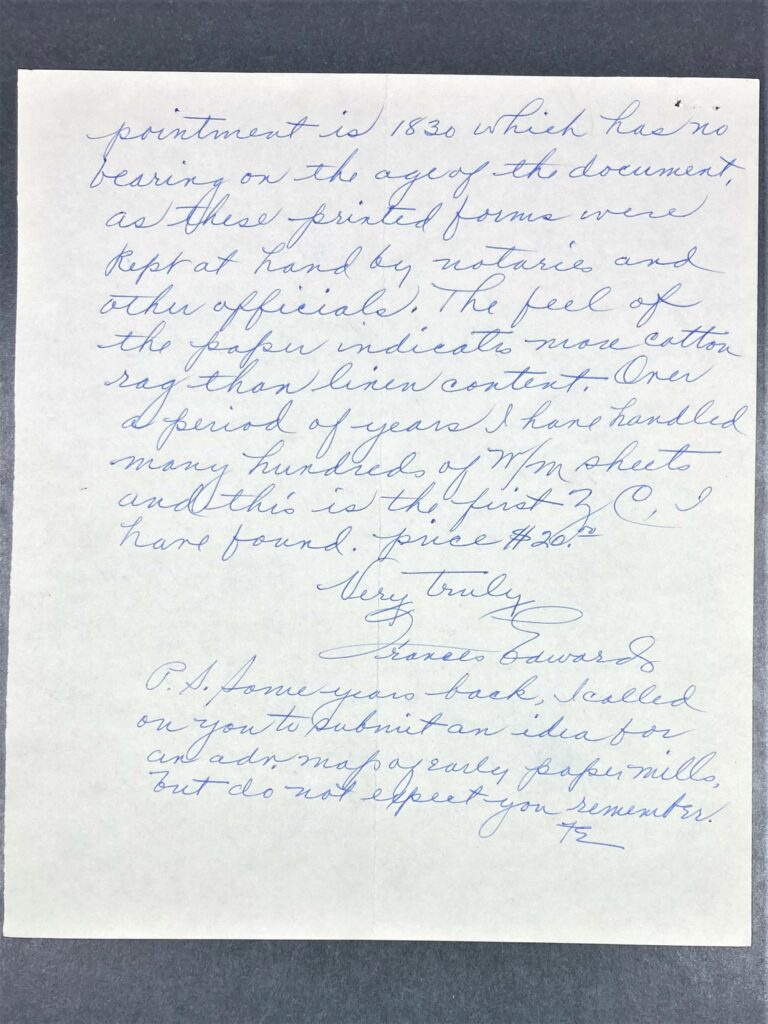 pointment is 1830 which has no
bearing on the age of the document,
as these printed forms were
kept at hand by notaries and
other officials. The feel of
the paper indicates more cotton
rag than linen content. Over
a period of years I have handled
many hundreds of W/m sheets
and this is the first Z C, I
have found. price $20.00
Very truly
Frances Edwards
P.S. Some years back, I called
on you to submit an idea for
an adv. map of early paper mills,
but do not expect you remember.
FE